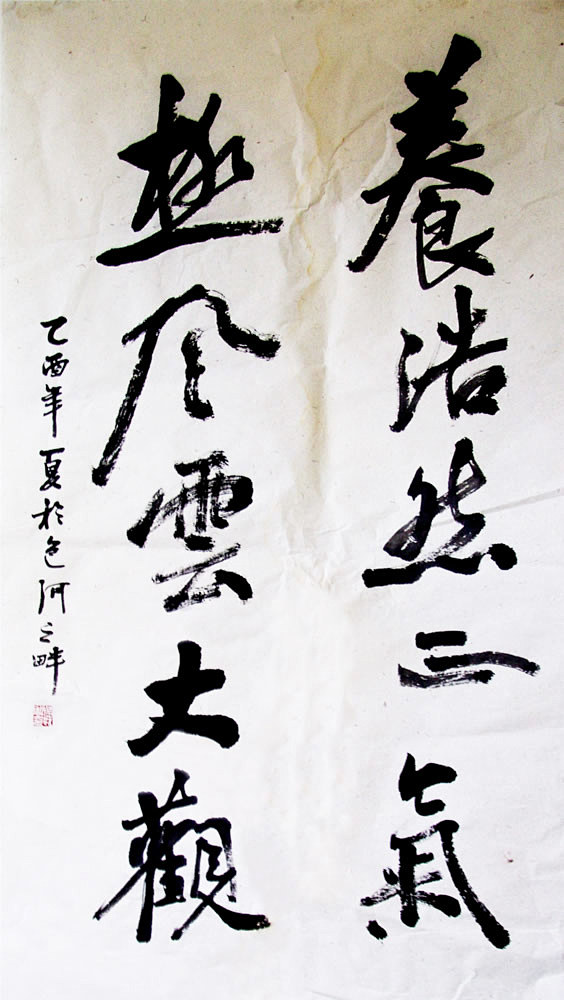 養浩然正氣
極風雲大觀
乙酉年夏於包河之畔